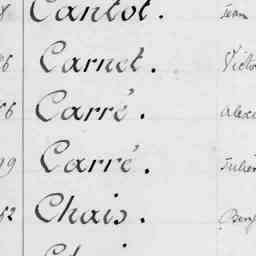 8 Cantot. Jean
Carnet. Victo
Carré. alexi
Carré. Julie
Chais. Benj